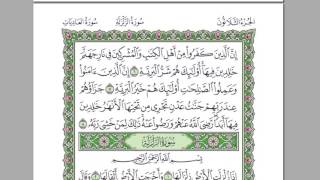 الجزء الثلاثون سورة الزلزلة سورة العاديات
إِنَّ ٱلَّذِينَ كَفَرُوا۟ مِنْ أَهْلِ ٱلْكِتَٰبِ وَٱلْمُشْرِكِينَ فِى نَارِ جَهَنَّمَ
خَٰلِدِينَ فِيهَآ أُو۟لَٰٓئِكَ هُمْ شَرُّ ٱلْبَرِيَّةِ ٦ إِنَّ ٱلَّذِينَ ءَامَنُوا۟
وَعَمِلُوا۟ ٱلصَّٰلِحَٰتِ أُو۟لَٰٓئِكَ هُمْ خَيْرُ ٱلْبَرِيَّةِ ٧ جَزَآؤُهُمْ
عِندَ رَبِّهِمْ جَنَّٰتُ عَدْنٍ تَجْرِى مِن تَحْتِهَا ٱلْأَنْهَٰرُ خَٰلِدِينَ
فِيهَآ أَبَدًا رَّضِىَ ٱللَّهُ عَنْهُمْ وَرَضُوا۟ عَنْهُ ذَٰلِكَ لِمَنْ خَشِىَ رَبَّهُۥ ٨
سورة الزلزلة
بِسْمِ ٱللَّهِ ٱلرَّحْمَٰنِ ٱلرَّحِيمِ
إِذَا زُلْزِلَتِ ٱلْأَرْضُ زِلْزَالَهَا ١ وَأَخْرَجَتِ ٱلْأَرْضُ أَثْقَالَهَا ٢ وَقَالَ